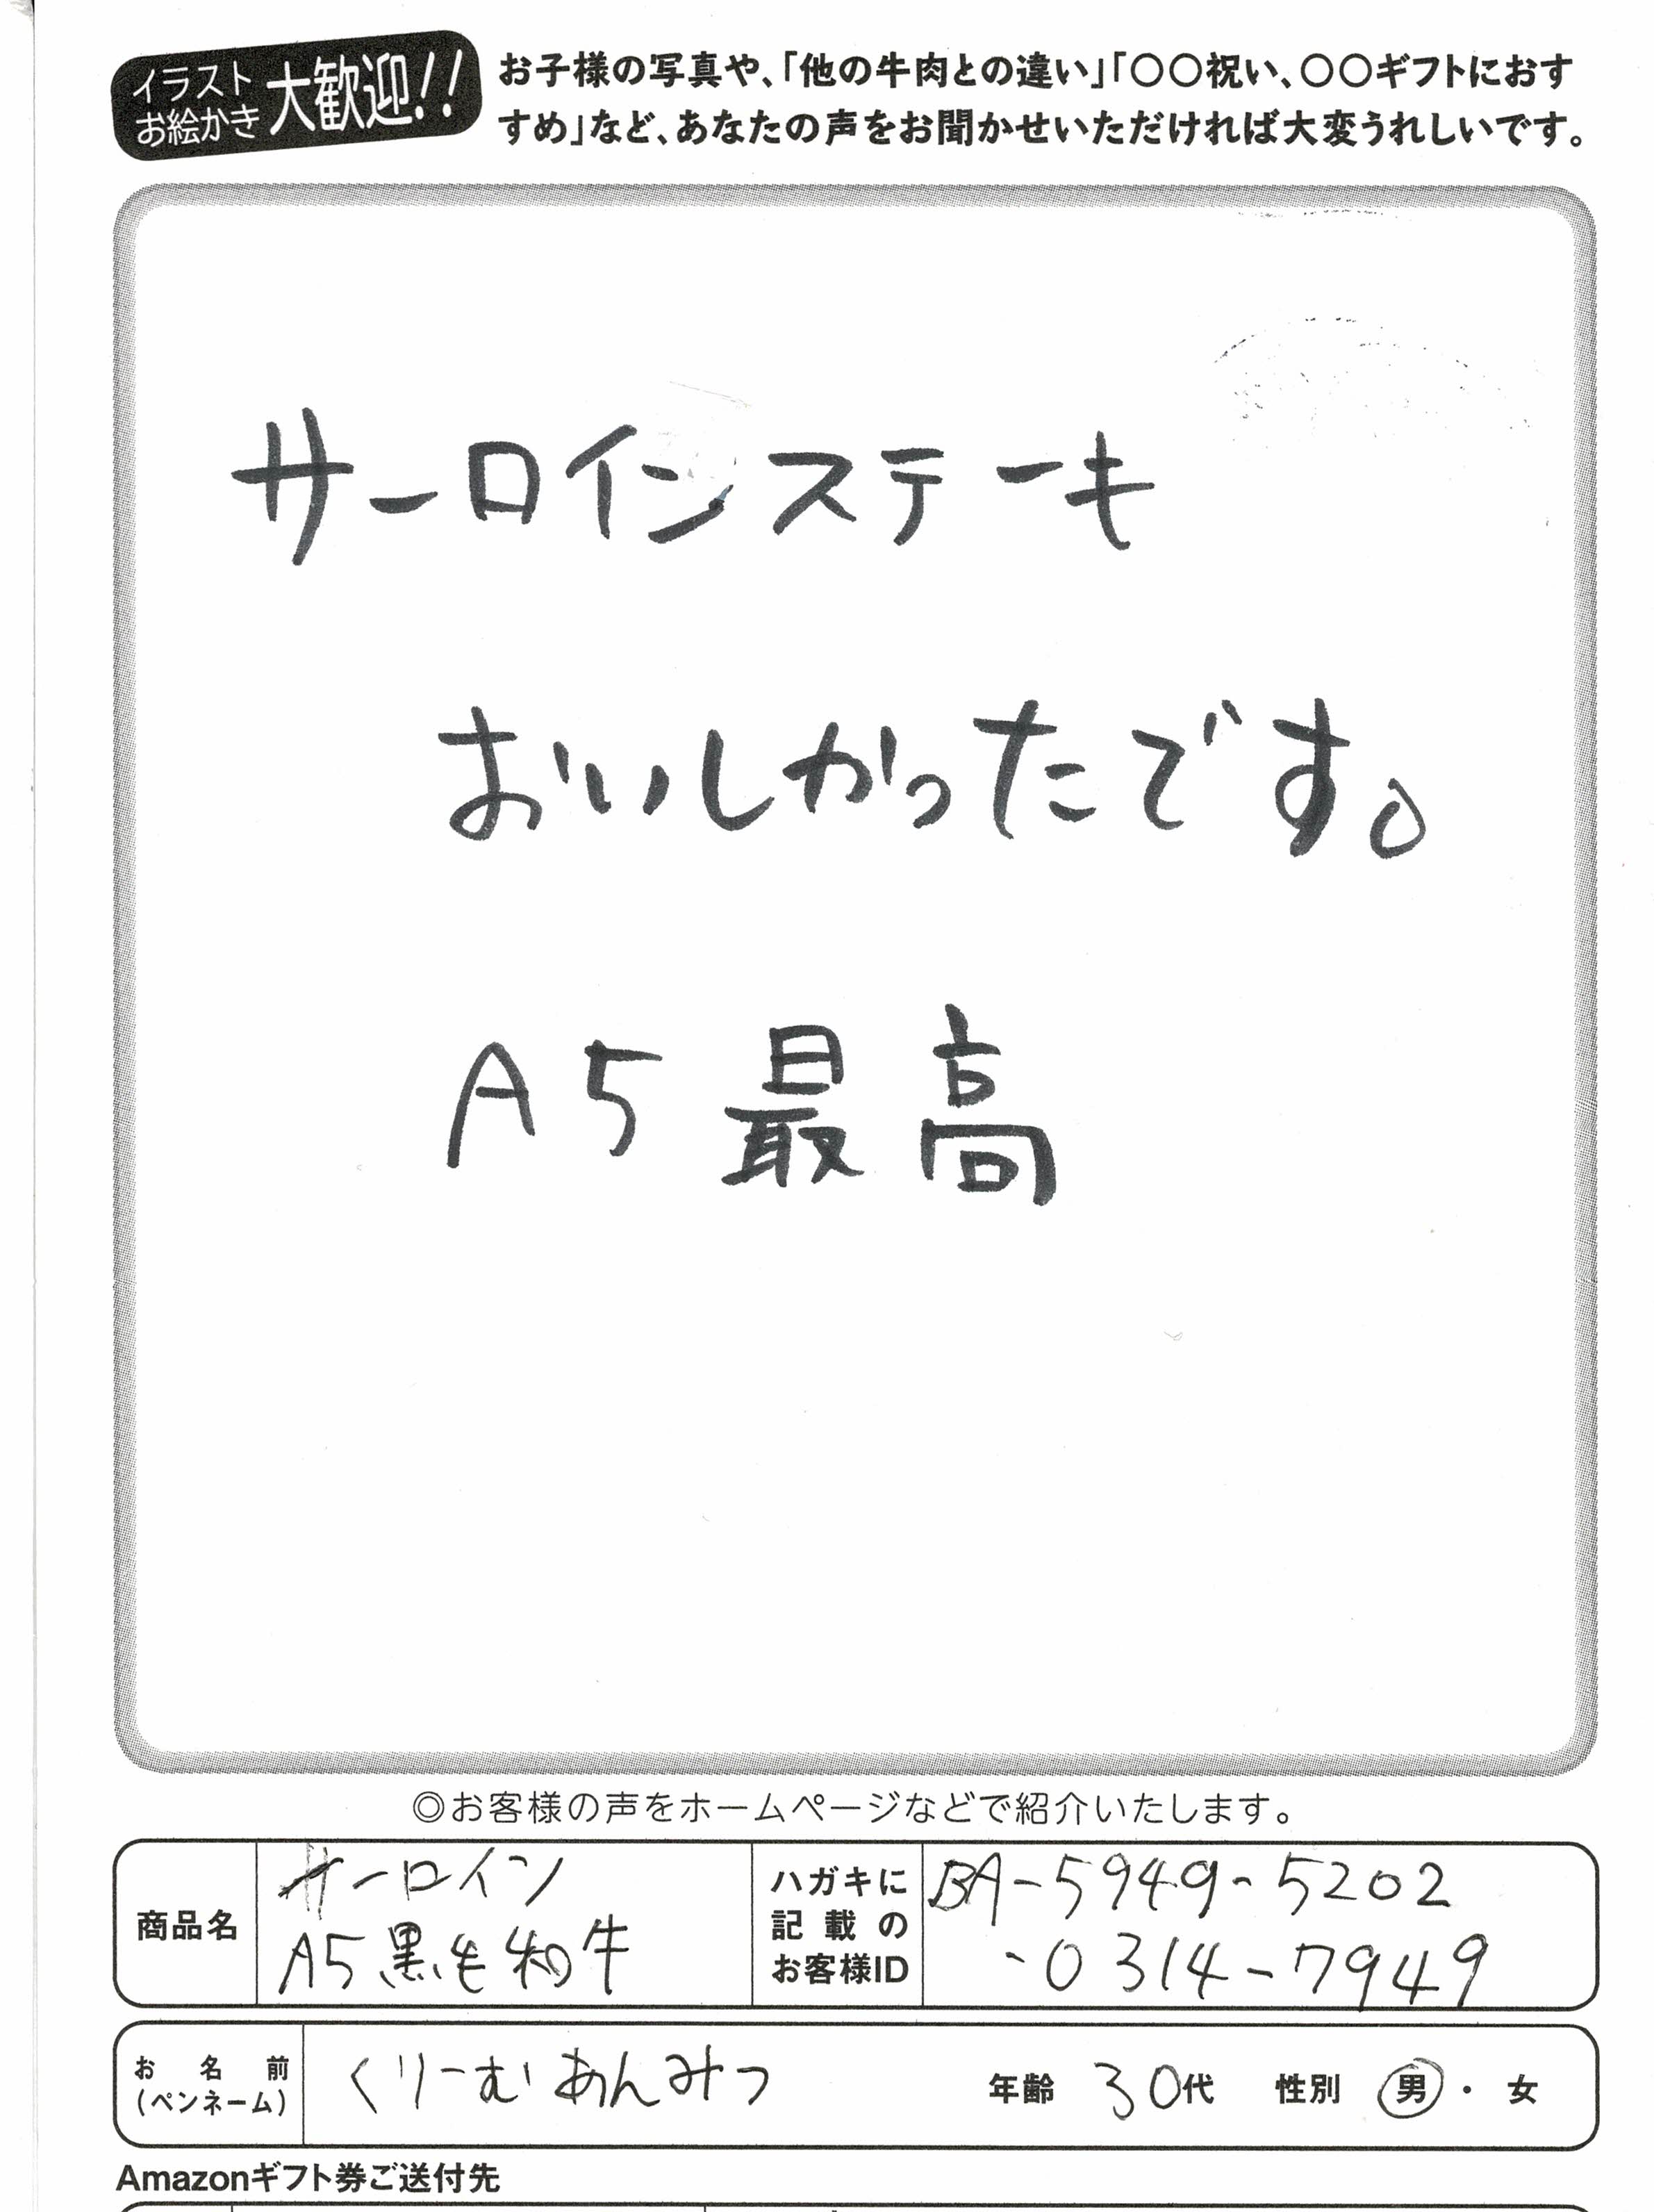 イラスト
お絵かき
大歓迎!!
お子様の写真や、「他の牛肉との違い」「〇〇祝い、〇〇ギフトにおす
すめ」など、あなたの声をお聞かせいただければ大変うれしいです。
サーロインステーキ
おいしかったです。
A5最高
◎お客様の声をホームページなどで紹介いたします。
商品名
サーロイン
A5黒毛和牛
ハガキに
記載の
お客様ID
BA-5949-5202
-0314-7949
お名前
(ペンネーム)
くりーむあんみつ
年齢 30代 性別 男・女
Amazonギフト券ご送付先